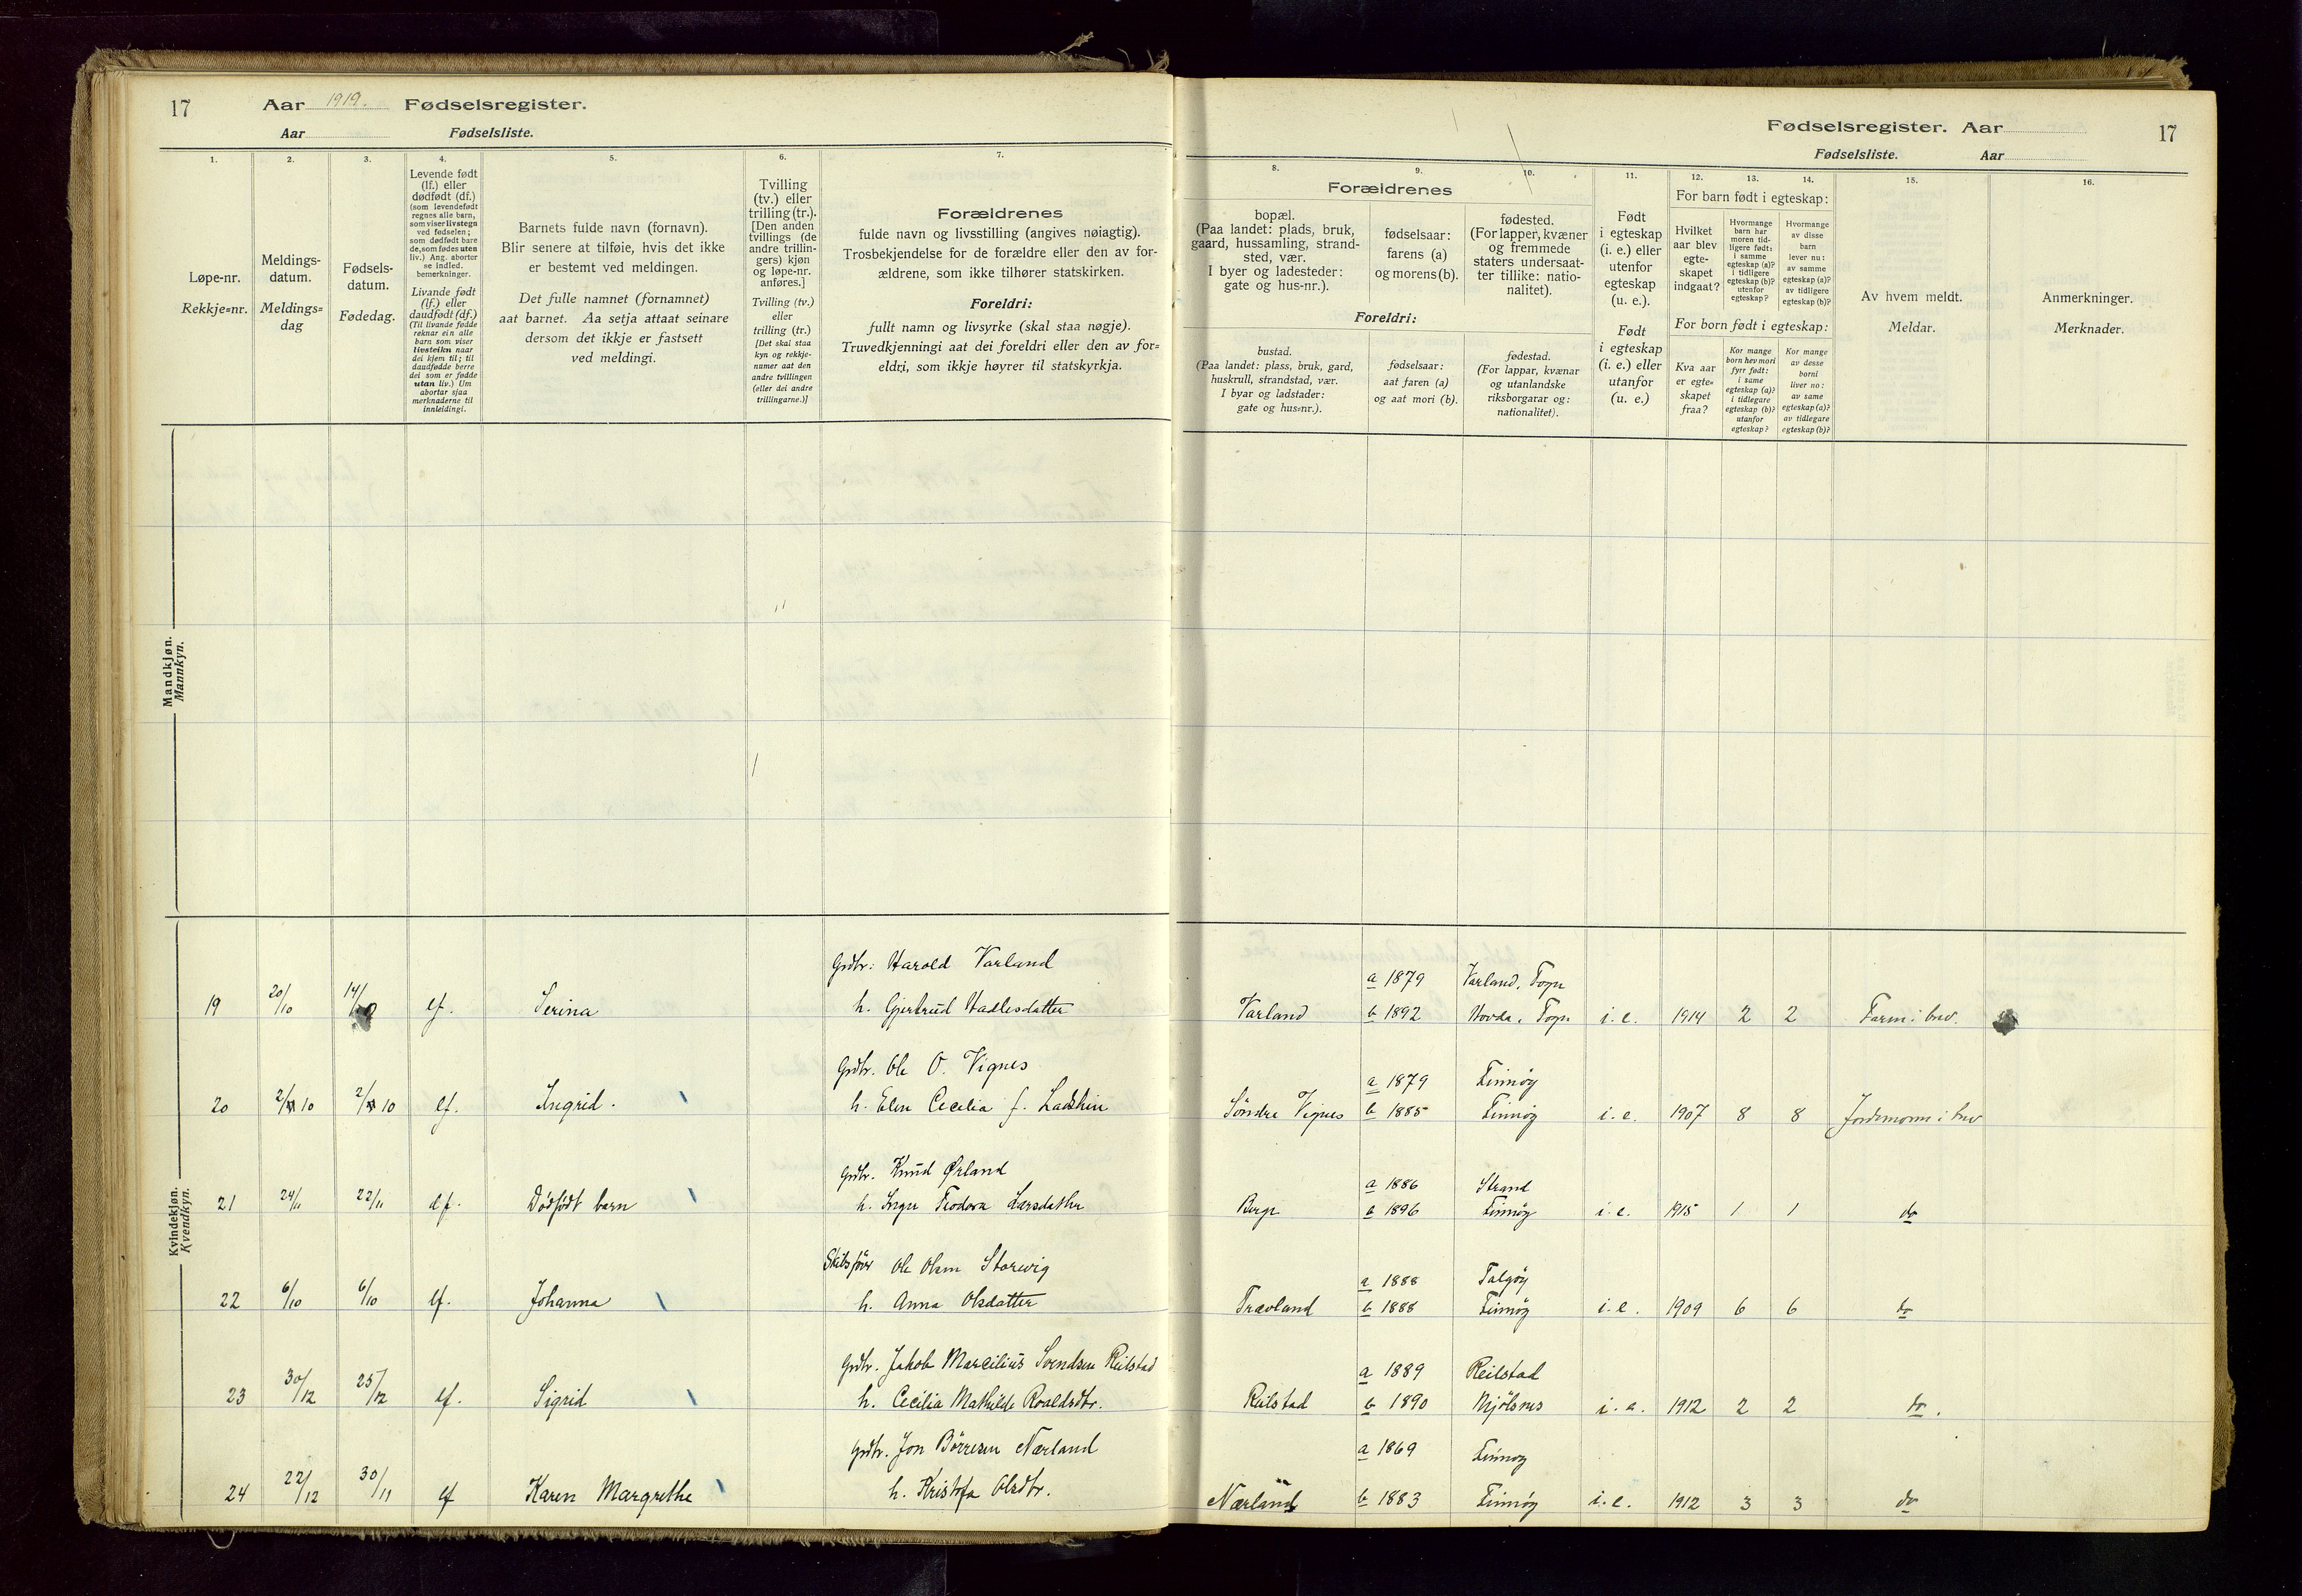 17
Aar 1919. Fødselsregister.
Aar Fødselsliste.
1.
2.
3.
4.
5.
6.
7.
Løpe-nr.
Rekkje=nr.
Meldings-
datum.
Meldings=
dag
Fødsels-
datum.
Fødedag.
Levende født
(lf.) eller
dødfødt (df.)
(som levendefødt
regnes alle barn,
som viser livstegn
ved fødselen;
som dødfødt bare
de, som fødes uten
liv.) Ang. aborter
se indled.
bemerkninger.
Livande født
(lf.) eller
daudfødt (df.)
(Til livande fødde
reknar ein alle
barn som viser
livsteikn naar
dei kjem til; til
daudfødde berre
dei som er fødde
utan liv.) Um
abortar sjaa
merknaderne til
innleidingi.
Barnets fulde navn (fornavn).
Blir senere at tilføie, hvis det ikke
er bestemt ved meldingen.
Det fulle namnet (fornamnet)
aat barnet. Aa setja attaat seinare
dersom det ikkje er fastsett
ved meldingi.
Tvilling
(tv.) eller
trilling (tr.).
[Den anden
tvillings (de
andre trillin-
gers) kjøn
og løpe-nr.
anføres.]
Tvilling (tv.)
eller
trilling (tr.)
[Det skal staa
kyn og rekkje-
numer aat den
andre tvillingen
(eller dei andre
trillingarne.)]
Forældrenes
fulde navn og livsstilling (angives nøiagtig).
Trosbekjendelse for de forældre eller den av for-
ældrene, som ikke tilhører statskirken.
Foreldri:
fullt namn og livsyrke (skal staa nøgje).
Truvedkjenningi aat dei foreldri eller den av for=
eldri, som ikkje høyrer til statskyrkja.
Mandkjøn.
Mannkyn.
Kvindekjøn.
Kvendkyn.
Grdbr: Harold Varland
19 20/10 14/ lf. Serina h. Gjertrud Hadlesdatter
Grdbr. Ole O. Vignes
20 2/10 2/10 lf. Ingrid. h. Elen Cecilia f. Ladstein
Grdbr. Knud Ørland
21 24/11 22/11 df. Dødfødt barn h. Inger Teodora Larsdatter
Skibsfører Ole Olsen Storvig
22 6/10 6/10 lf. Johanna h. Anna Olsdatter
Grdbr. Jakob Marcilius Svendsen Reilstad
23 30/12 25/12 lf. Sigrid h. Cecilia Mathilde Roaldsdtr.
Grdbr. Jon Børresen Nærland
24 22/12 30/11 lf Karen Margrethe h. Kristofa Olsdtr.
Fødselsregister. Aar
17
Fødselsliste. Aar
8.
9.
10.
11.
12.
13.
14.
15.
16.
Forældrenes
bopæl.
(Paa landet: plads, bruk,
gaard, hussamling, strand-
sted, vær.
I byer og ladesteder:
gate og hus-nr.).
fødselsaar:
farens (a)
og morens (b).
fødested.
(For lapper, kvæner
og fremmede
staters undersaat-
ter tillike: natio-
nalitet).
Foreldri:
bustad.
(Paa landet: plass, bruk, gard,
huskrull, strandstad, vær.
I byar og ladstader:
gate og hus=nr.).
fødselsaar:
aat faren (a)
og aat mori (b).
fødestad.
(For lappar, kvænar
og utanlandske
riksborgarar og:
nationalitet).
Født
i egteskap
(i. e.) eller
utenfor
egteskap
(u. e.).
Født
i egteskap
(i. e.) eller
utanfor
(u. e.)
For barn født i egteskap:
Hvilket
aar blev
egte-
skapet
indgaat?
Hvormange
barn har
moren tid-
ligere født:
i samme
egteskap (a)?
i tidligere
egteskap (b)?
utenfor
egteskap?
Hvormange
av disse
barn
lever nu:
av samme
egteskap (a)?
av tidligere
egteskap (b)?
For born født i egteskap:
Kva aar
er egte=
skapet
fraa?
Kor mange
born hev mori
fyrr født:
i same
egteskap (a)?
i tidlegare
egteskap (b)?
utanfor
egteskap?
Kor mange
av desse
borni
liver no:
av same
egteskap (a)?
av tidlegare
egteskap (b)?
Av hvem meldt.
Meldar.
Anmerkninger.
Merknader.
a 1879 Varland, Fogn
Varland b 1892 Hovda, Fogn i. e. 1914 2 2 Faren i brev.
a 1879 Finnøy
Søndre Vignes b 1885 Finnøy i. e. 1907 8 8 Jordmoren i brev
a 1886 Strand
Berge b 1896 Finnøy i. e. 1915 1 1 do
a 1888 Talgøy
Trævland b 1888 Finnøy i. e. 1909 6 6 do
a 1889 Reilstad
Reilstad b 1890 Mjølsnes i. e. 1912 2 2 do.
a 1869 Finnøy
Nærland b 1883 Finnøy i. e. 1912 3 3 do